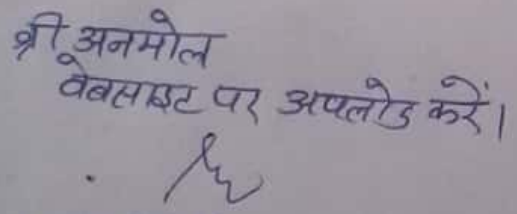 श्री अनमोल
वेबसाइट पर अपलोड करें।